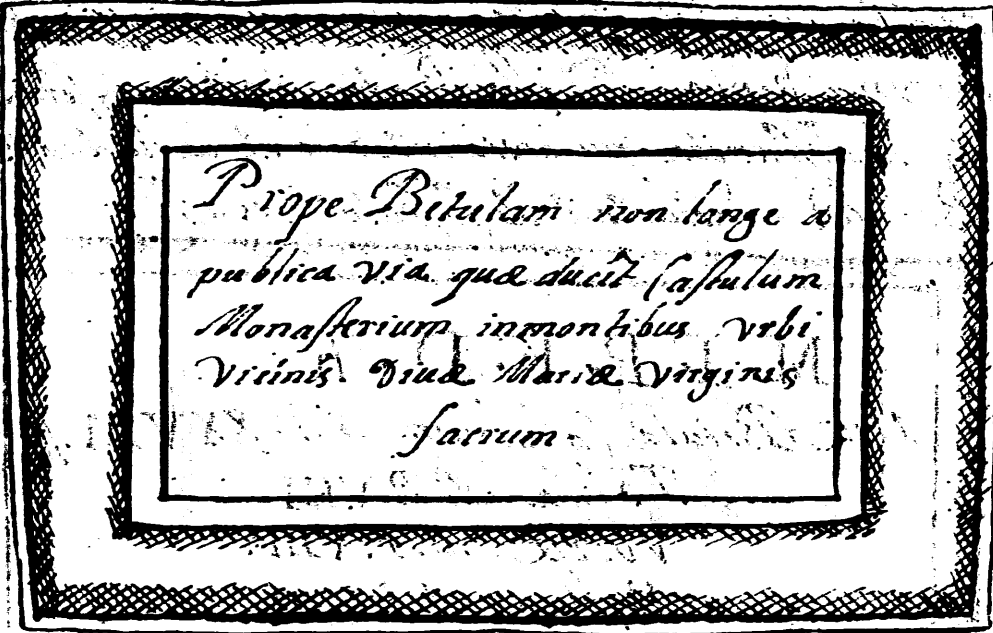 Prope Betulam non longe a
publica via quæ ducit Castulum
Monasterium inmontibus vrbi
Vicinis. Diuæ Mariæ Virginis
sacrum